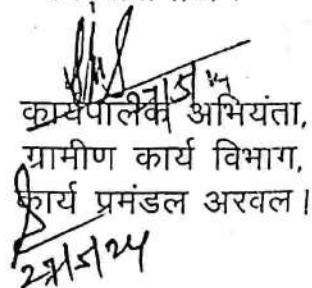 कार्यपालक अभियंता,
ग्रामीण कार्य विभाग,
कार्य प्रमंडल अरवल।
27/5/24